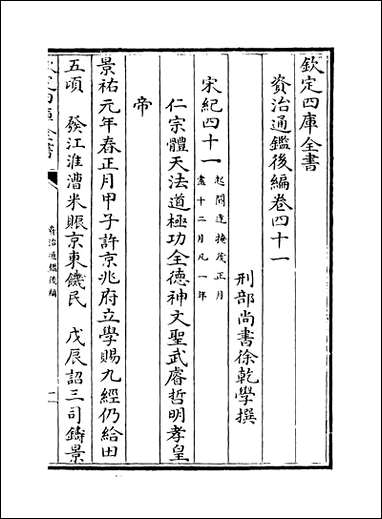 欽定四庫全書
資治通鑑後編卷四十一
刑部尚書徐乾學撰
宋紀四十一
起閼逢掩茂正月
盡十二月凡一年
仁宗體天法道極功全德神文聖武睿哲明孝皇
帝
景祐元年春正月甲子許京兆府立學賜九經仍給田
五頃　發江淮漕米賑京東饑民　戊辰詔三司鑄景
資治通鑑後編
一